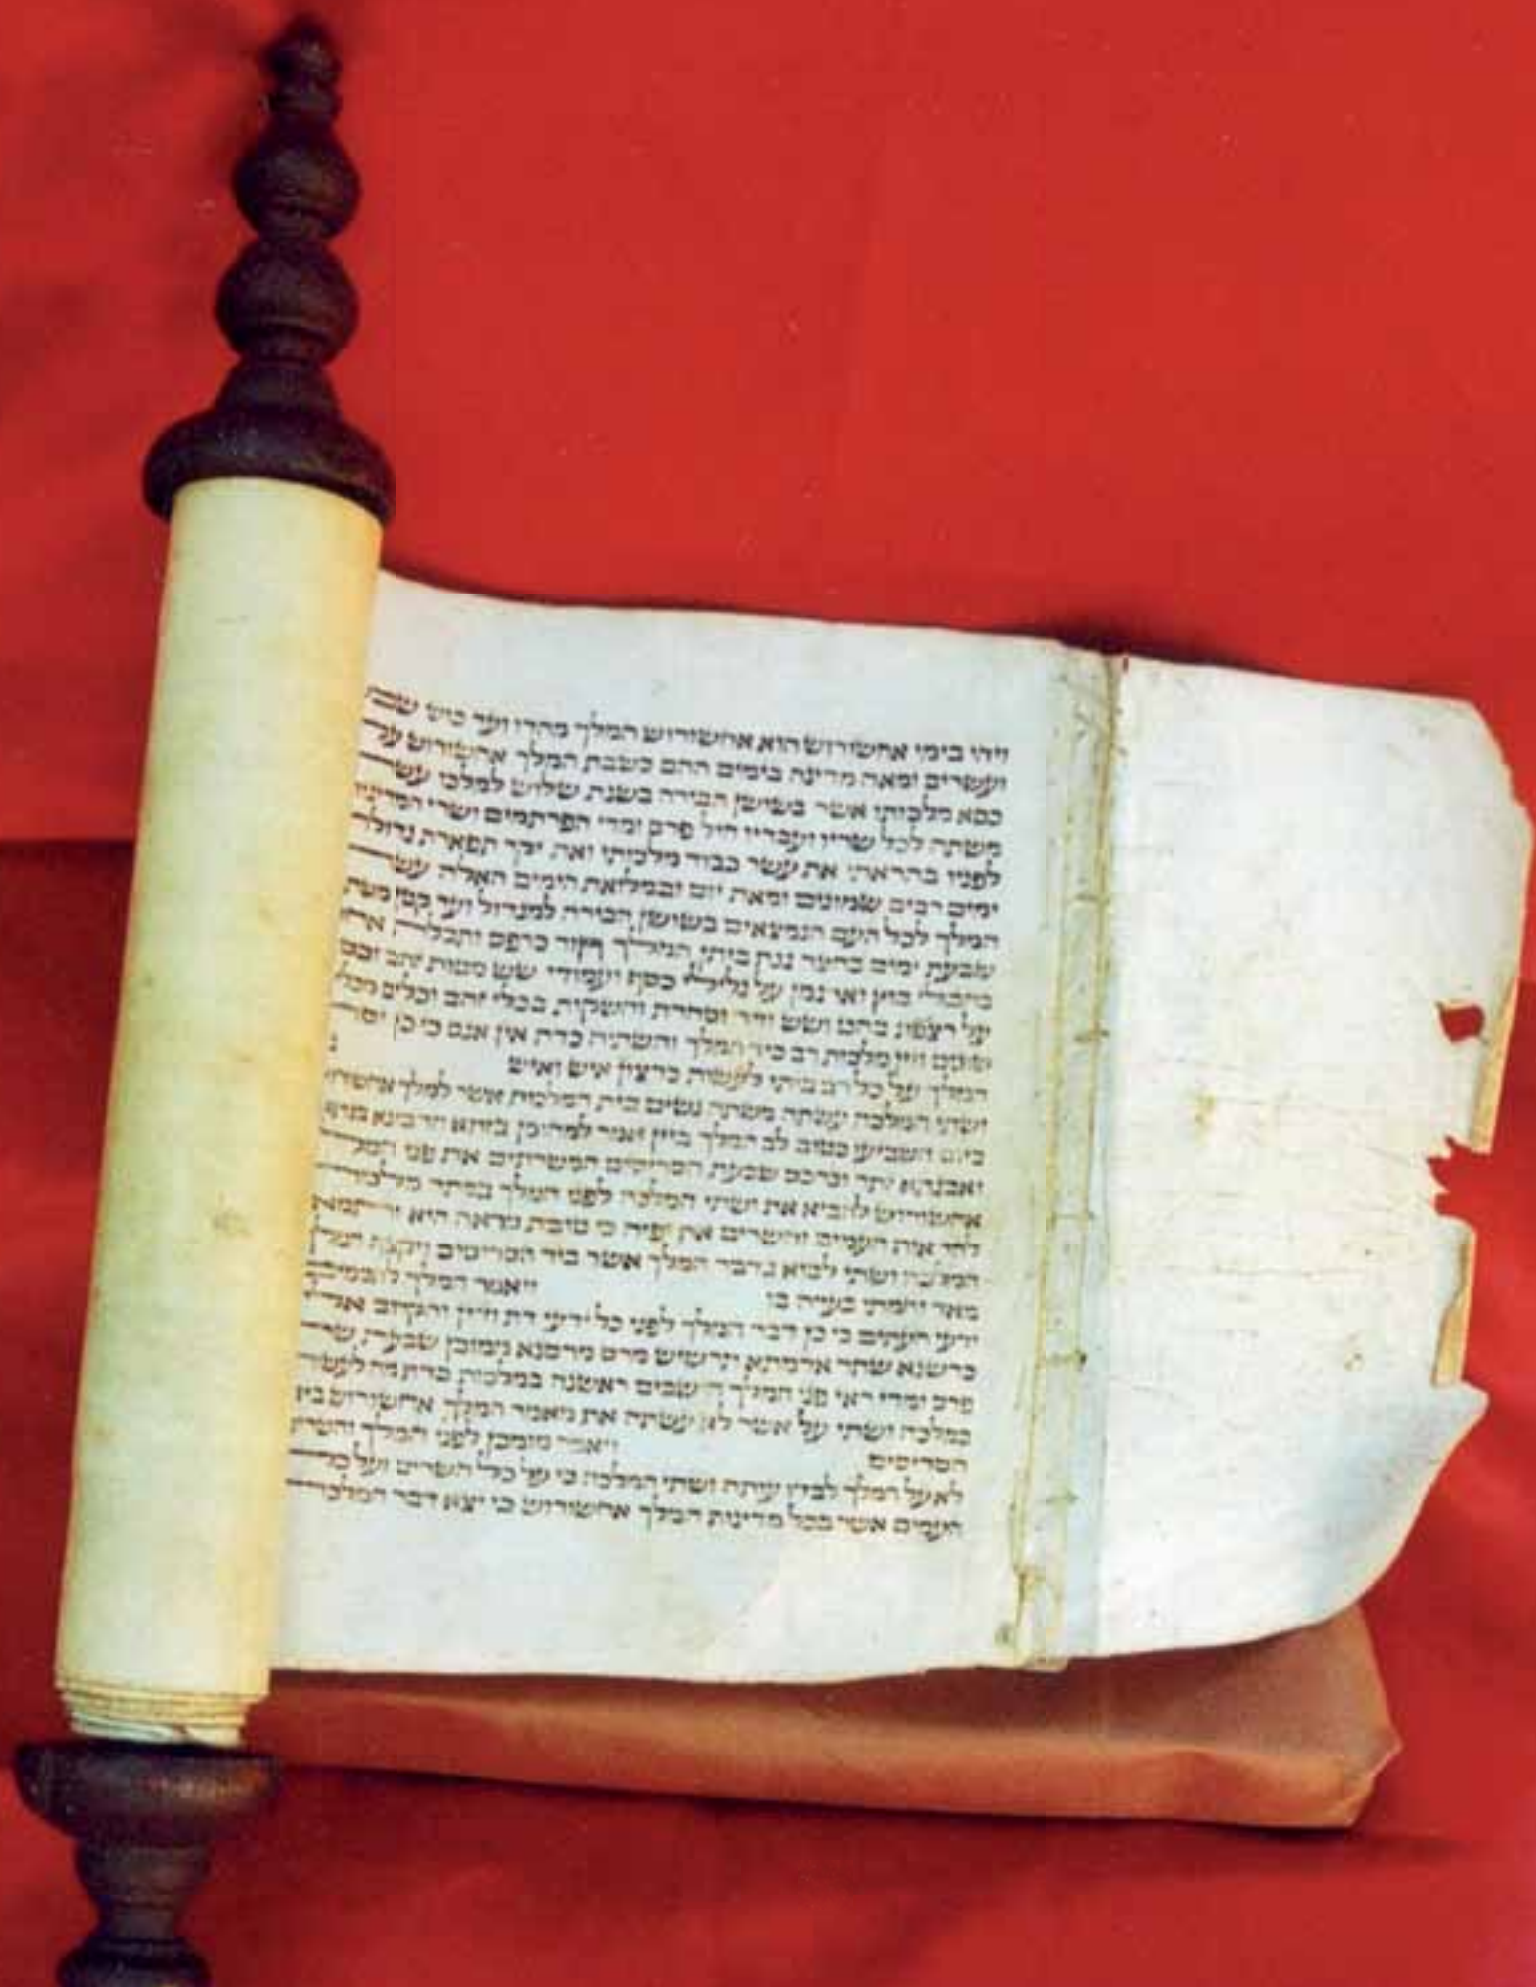 ויהי בימי אחשורוש הוא אחשורוש המלך מהדו ועד כוש שבע
ועשרים ומאה מדינה בימים ההם כשבת המלך אחשורוש על
כסא מלכותו אשר בשושן הבירה בשנת שלוש למלכו עשה
משתה לכל שריו ועבדיו חיל פרס ומדי הפרתמים ושרי המדינות
לפניו בהראתו את עשר כבוד מלכותו ואת יקר תפארת גדולתו
ימים רבים שמונים ומאת יום ובמלואת הימים האלה עשה
המלך לכל העם הנמצאים בשושן הבירה למגדול ועד קטן משתה
שבעת ימים בחצר גנת ביתן המלך חור כרפס ותכלת אחוז
בחבלי בוץ וארגמן על גלילי כסף ועמודי שש מטות זהב וכסף
על רצפת בהט ושש ודר וסחרת והשקות בכלי זהב וכלים מכלים
שונים ויין מלכות רב כיד המלך והשתיה כדת אין אנס כי כן יסד
המלך על כל רב ביתו לעשות כרצון איש ואיש
ושתי המלכה עשתה משתה נשים בית המלכות אשר למלך אחשורוש
ביום השביעי כטוב לב המלך ביין אמר למהומן בזתא חרבונא בגתא
ואבגתא זתר וכרכס שבעת הסריסים המשרתים את פני המלך
אחשורוש להביא את ושתי המלכה לפני המלך בכתר מלכות
להראות העמים והשרים את יפיה כי טובת מראה היא ותמאן
המלכה ושתי לבוא בדבר המלך אשר ביד הסריסים ויקצף המלך
מאד וחמתו בערה בו ויאמר המלך לחכמים
ידעי העתים כי כן דבר המלך לפני כל ידעי דת ודין והקרוב אליו
כרשנא שתר אדמתא תרשיש מרס מרסנא ממוכן שבעת שרי
פרס ומדי ראי פני המלך הישבים ראשנה במלכות כדת מה לעשות
במלכה ושתי על אשר לא עשתה את מאמר המלך אחשורוש ביד
הסריסים ויאמר מומכן לפני המלך והשרים
לא על המלך לבדו עותה ושתי המלכה כי על כל השרים ועל כל
העמים אשר בכל מדינות המלך אחשורוש כי יצא דבר המלכה